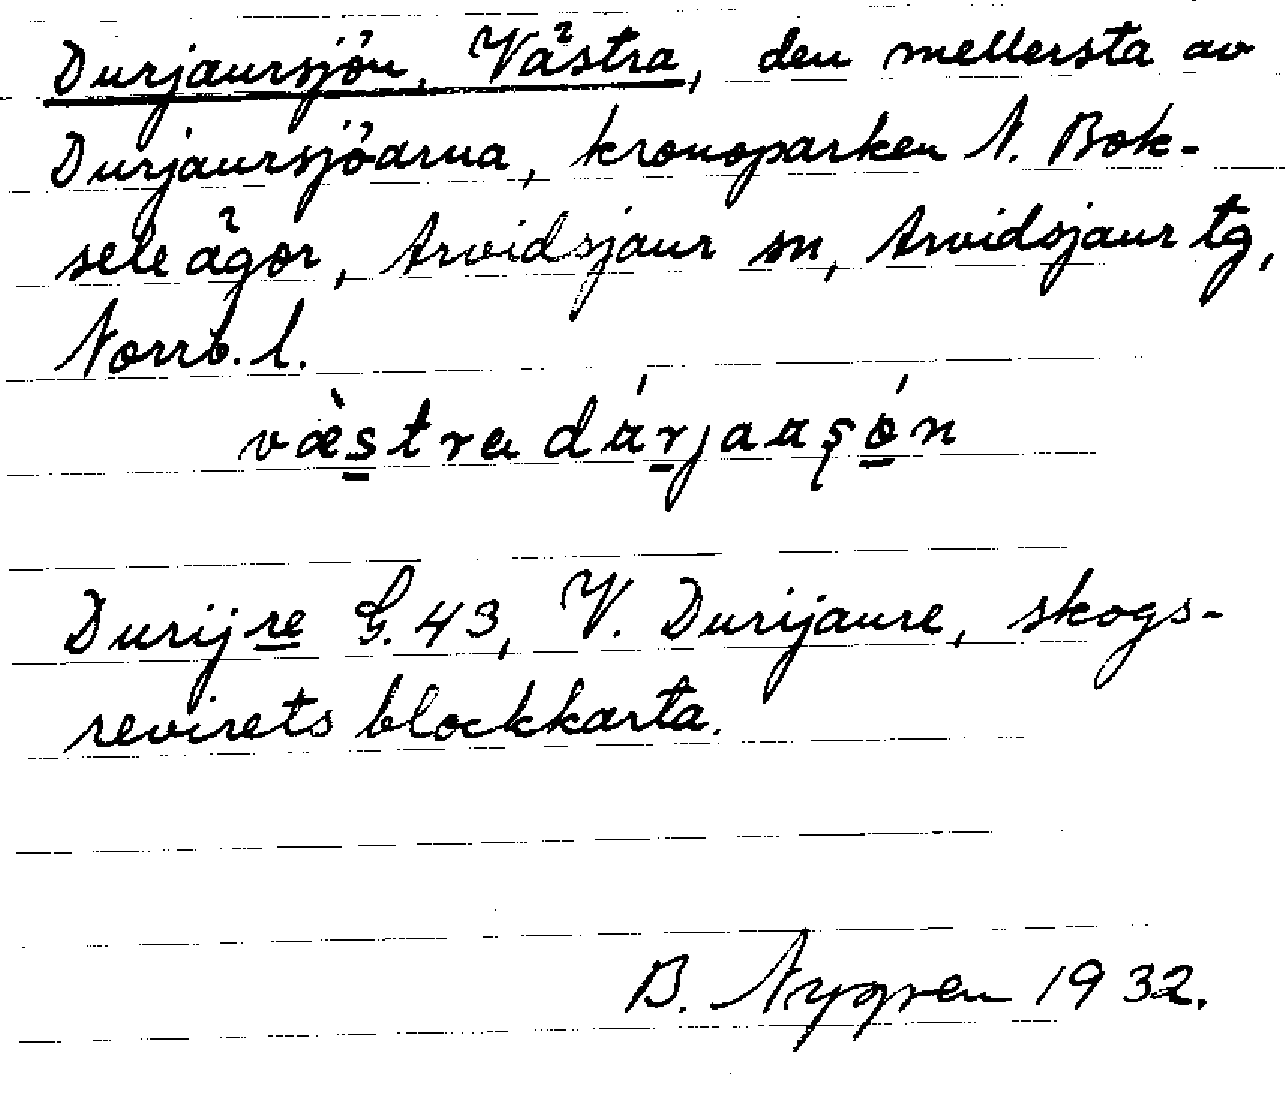 Durjaursjön, Västra, den mellersta av
Durjaursjöarna, kronoparken N. Bok-
sele ägor, Arvidsjaur sn, Arvidsjaur tg,
Norrb. l.
væ̀stra dárjaaʂǿn
Durijre G. 43, V. Durijaure, skogs-
revirets blockkarta.
B. Nygren 1932.